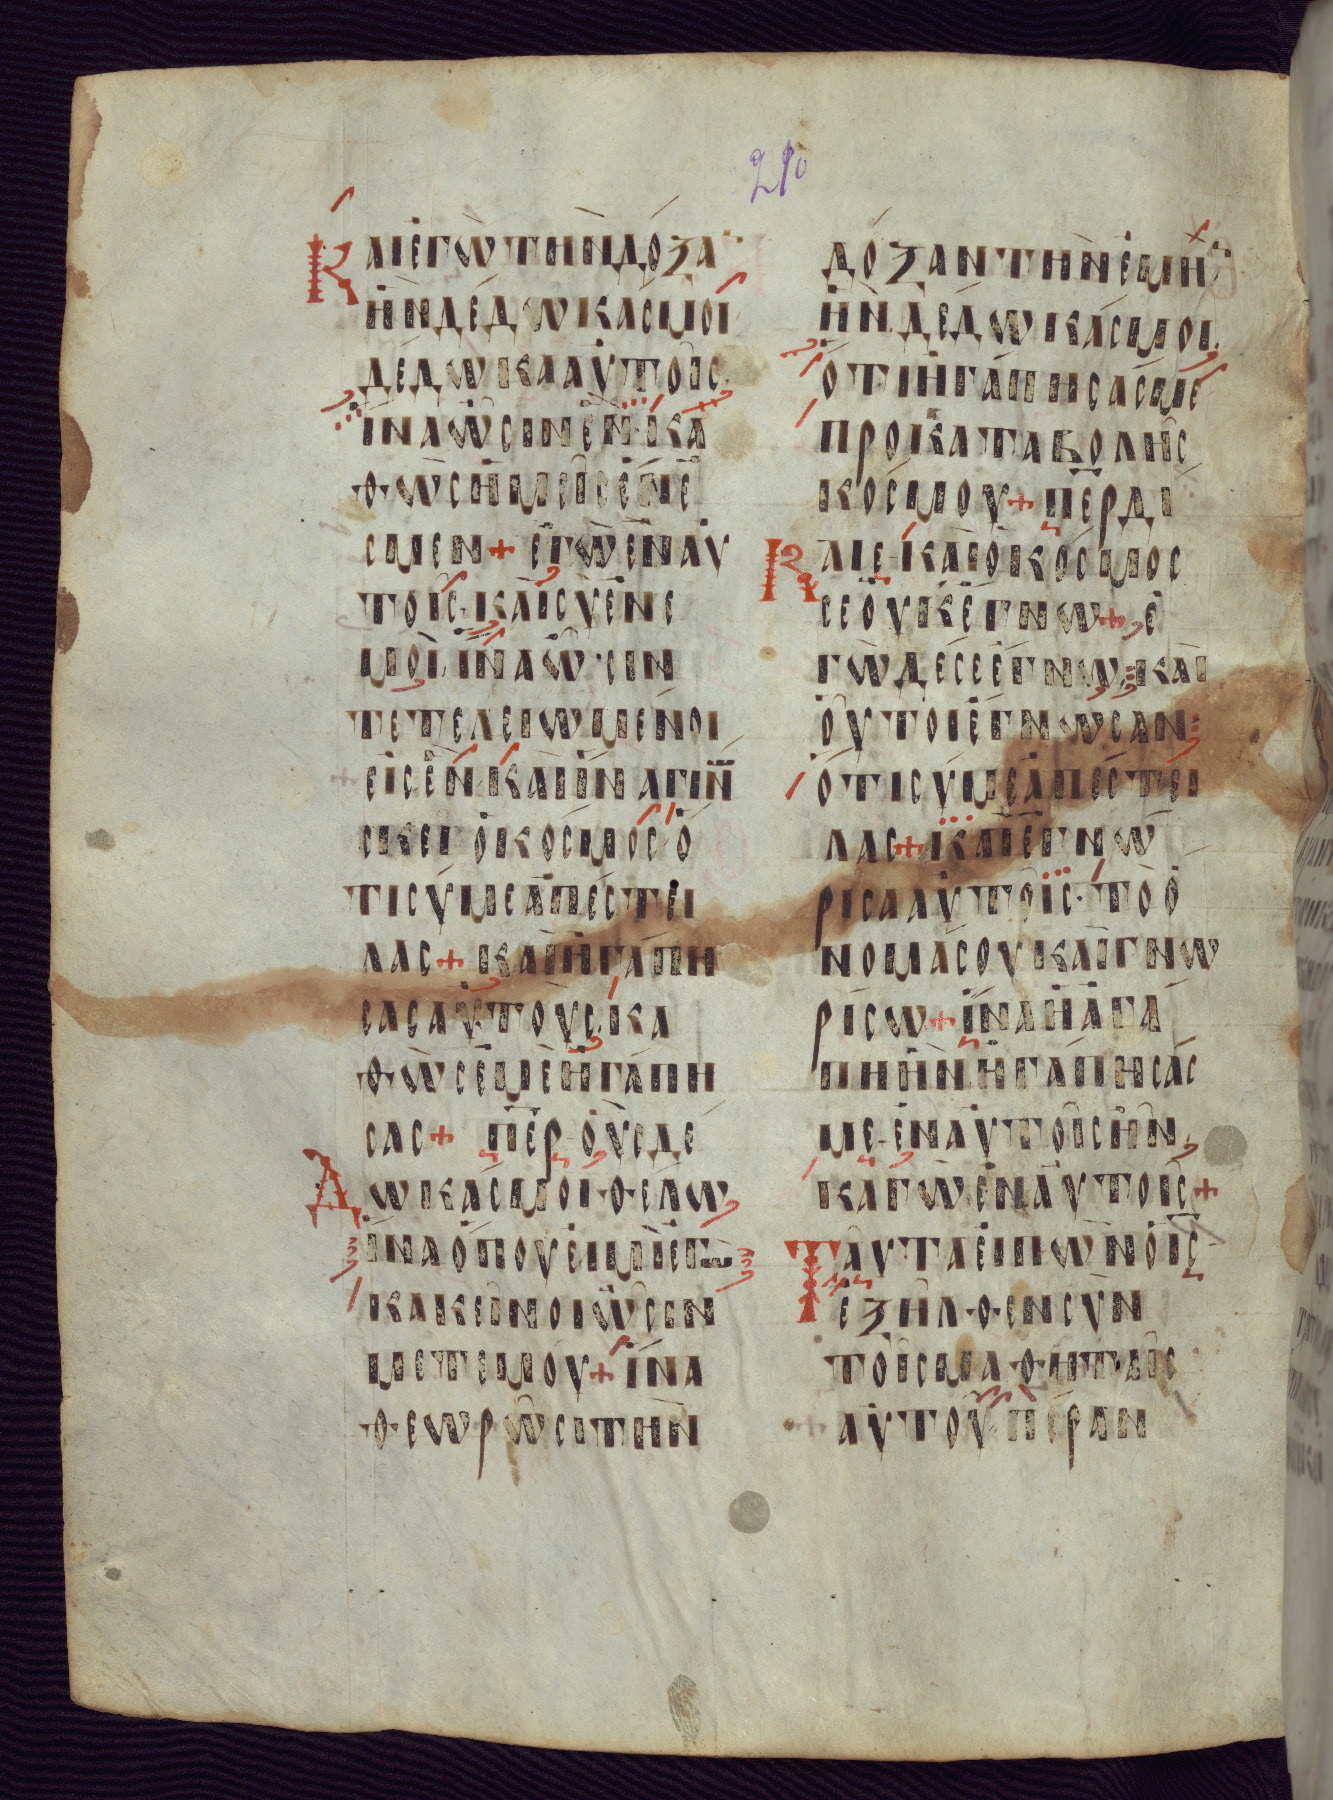 210
ΚΑΙΕΓΩΤΗΝΔΟΞΑ
ΗΝΔΕΔΩΚΑϹΜΟΙ
ΔΕΔΩΚΑΑΥΤΟΙϹ·
ΙΝΑΩϹΙΝΕΝ·ΚΑ
ΘΩϹΗΜΕΙϹΕΝΕ
ϹΜΕΝ+ΕΓΩΕΝΑΥ
ΤΟΙϹ·ΚΑΙϹΥΕΝΕ
ΜΟΙ·ΙΝΑΩϹΙΝ
ΤΕΤΕΛΕΙΩΜΕΝΟΙ
ΕΙϹΕΝ·ΚΑΙΙΝΑΓΙΝΩ
ϹΚΕΙΟΚΟϹΜΟϹ·Ο
ΤΙϹΥΜΕΑΠΕϹΤΕΙ
ΛΑϹ+ΚΑΙΗΓΑΠΗ
ϹΑϹΑΥΤΟΥϹ·ΚΑ
ΘΩϹΕΜΕΗΓΑΠΗ
ϹΑϹ+ΠΕΡ·ΟΥϹΔΕ
ΔΩΚΑϹΜΟΙ·ΘΕΛΩ
ΙΝΑΟΠΟΥΕΙΜΙΕΓΩ
ΚΑΚΕΙΝΟΙΩϹΙΝ
ΜΕΤΕΜΟΥ+ΙΝΑ
ΘΕΩΡΩϹΙΤΗΝ
ΔΟΞΑΝΤΗΝΕΜΗ
ΗΝΔΕΔΩΚΑϹΜΟΙ·
ΟΤΙΗΓΑΠΗϹΑϹΜΕ
ΠΡΟΚΑΤΑΒΟΛΗϹ
ΚΟϹΜΟΥ+ΠΕΡΔΙ
ΚΑΙΕ·ΚΑΙΟΚΟϹΜΟϹ
ϹΕΟΥΚΕΓΝΩ+Ε
ΓΩΔΕϹΕΕΓΝΩ·ΚΑΙ
ΟΥΤΟΙΕΓΝΩϹΑΝ
ΟΤΙϹΥΜΕΑΠΕϹΤΕΙ
ΛΑϹ+ΚΑΙΕΓΝΩ
ΡΙϹΑΑΥΤΟΙϹ·ΤΟΟ
ΝΟΜΑϹΟΥΚΑΙΓΝΩ
ΡΙϹΩ+ΙΝΑΗΑΓΑ
ΠΗΗΝΗΓΑΠΗϹΑϹ
ΜΕ·ΕΝΑΥΤΟΙϹΗΝ
ΚΑΓΩΕΝΑΥΤΟΙϹ+
ΤΑΥΤΑΕΙΠΩΝΟΙϹ
ΕΞΗΛΘΕΝϹΥΝ
ΤΟΙϹΜΑΘΗΤΑΙϹ
ΑΥΤΟΥ·ΠΕΡΑΝ